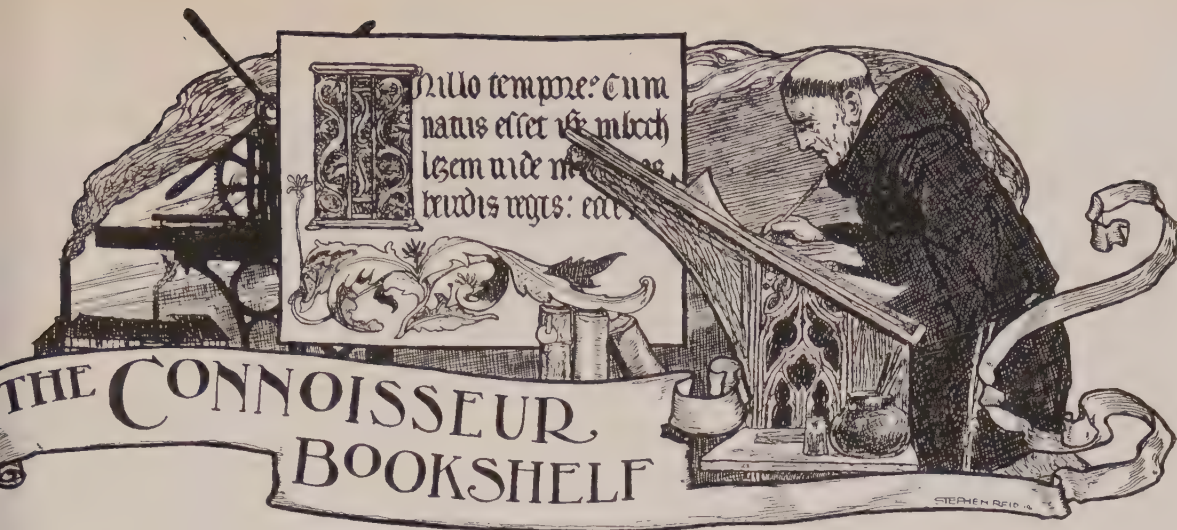 INillo tempore: Cum
natus esset in beth
lezem iude
herodis regis:
THE CONNOISSEUR
BOOKSHELF
STEPHEN REID